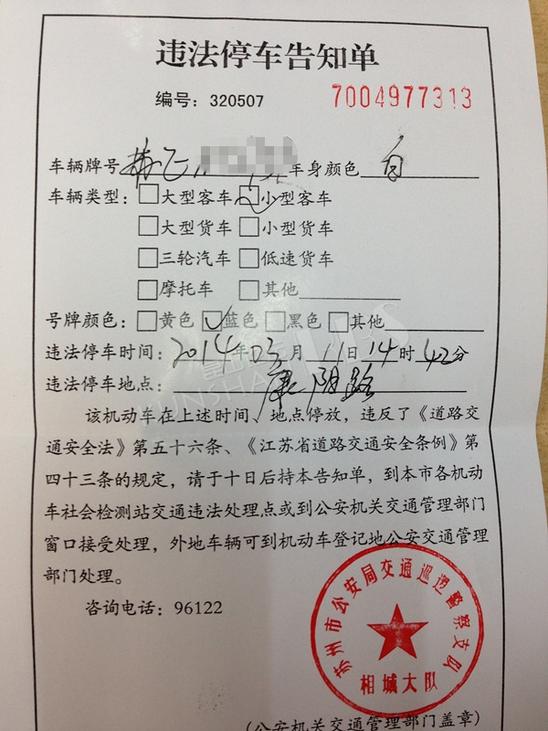 违法停车告知单
编号：320507 7004977313
车辆牌号 车身颜色 白
车辆类型：大型客车 小型客车
大型货车 小型货车
三轮汽车 低速货车
摩托车 其他
号牌颜色：黄色 蓝色 黑色 其他
违法停车时间：2014年03月11日14时42分
违法停车地点： 康阳路
该机动车在上述时间、地点停放，违反了《道路交
通安全法》第五十六条、《江苏省道路交通安全条例》第
四十三条的规定，请于十日后持本告知单，到本市各机动
车社会检测站交通违法处理点或到公安机关交通管理部门
窗口接受处理，外地车辆可到机动车登记地公安交通管理
部门处理。
咨询电话：96122
苏州市公安局交通巡逻警察支队
相城大队
(公安机关交通管理部门盖章)